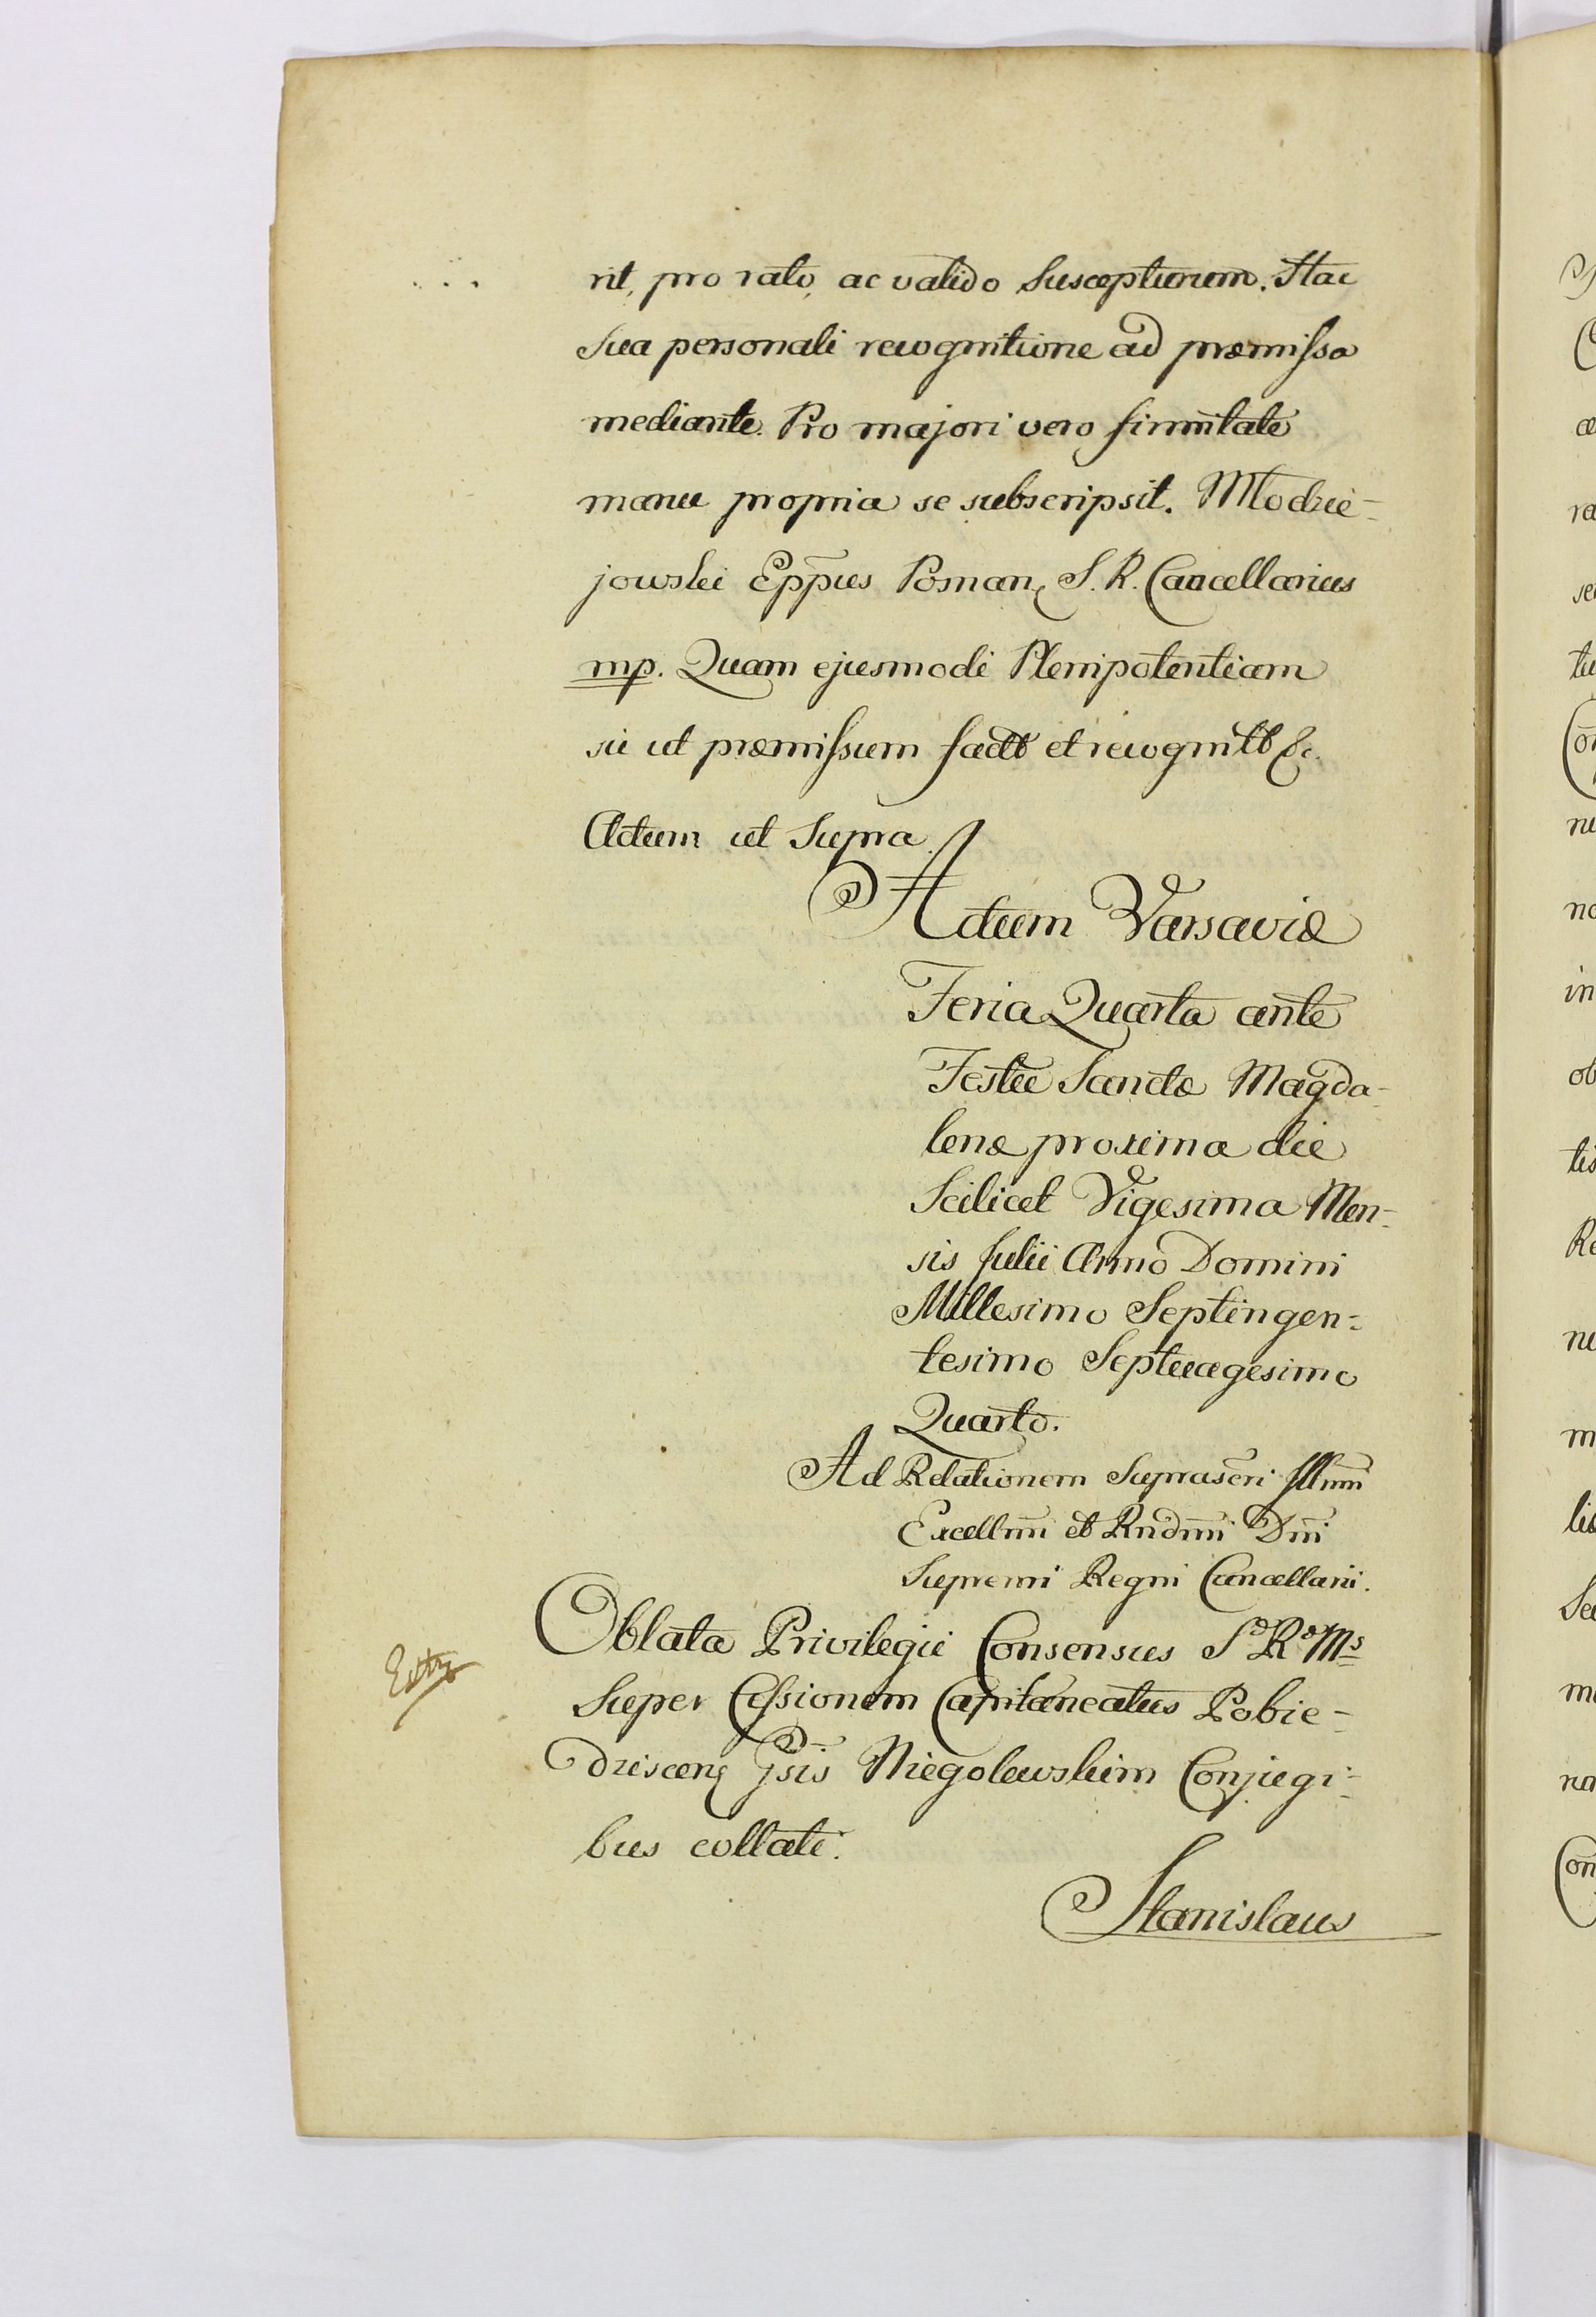 rit, pro rato, ac valido Suscepturum. Hac
Sua personali recognitione ad præmissa
mediante. Pro majori vero firmitate
manu propria se subscripsit. Młodzie-
jowski Epp̃us Posnan. S. R. Cancellarius
mp. Quam ejusmodi Plenipotentiam
sic ut præmissum fact et recognit &c.
Actum ut Supra.
Actum Varsaviæ
Feria Quarta ante
Festũ Sanctæ Magda-
lenæ proxima die
Scilicet Vigesima Men-
sis Julii Anno Domini
Millesimo Septingen-
tesimo Septuagesimo
Quarto.
Ad Relationem Suprascri Illmi
Excellmi et Rndmi Dni
Supremi Regni Cancellarii.
Oblata Privilegii Consensus S. R. Ms
Super Cessionem Capitaneatus Pobie-
dziscen Gsis Niegolewskim Conjugi-
bus collati.
Stanislaus